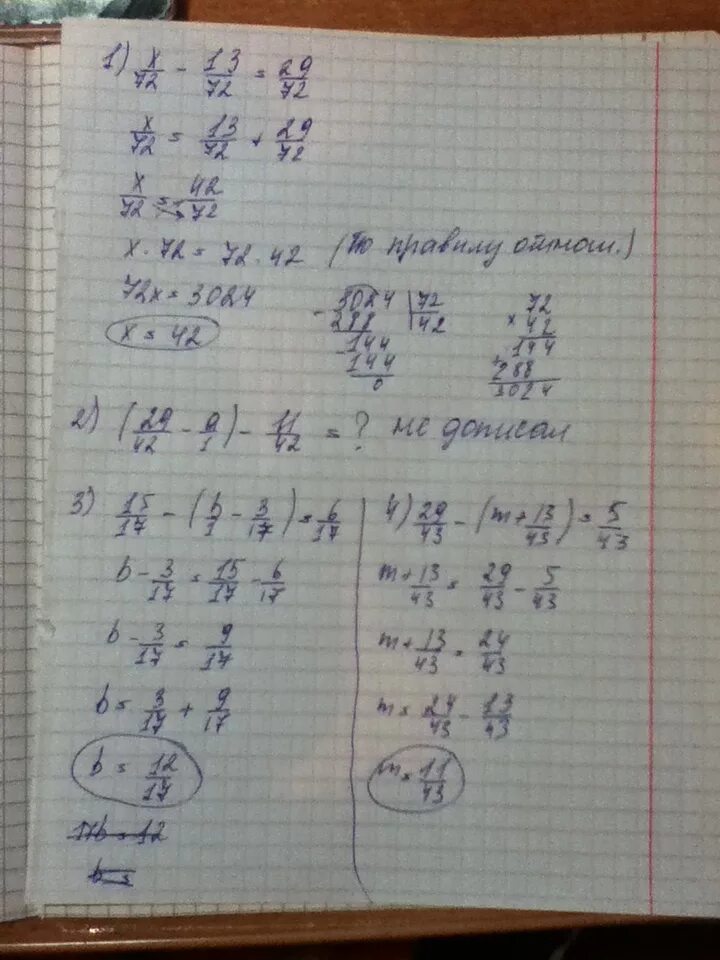 1) x/72 - 13/72 = 29/72
x/72 = 13/72 + 29/72
x/72 = 42/72
x · 72 = 72 · 42 (По правилу отнош.)
72x = 3024
x = 42
- 3024 | 72
288 | 42
- 144
144
0
72
× 42
144
+ 288
3024
2) (29/42 - a/1) - 11/42 = ? не дописал
3) 15/17 - (b/1 - 3/17) = 6/17
b - 3/17 = 15/17 - 6/17
b - 3/17 = 9/17
b = 3/17 + 9/17
b = 12/17
17b = 12
b =
4) 29/43 - (m + 13/43) = 5/43
m + 13/43 = 29/43 - 5/43
m + 13/43 = 24/43
m = 24/43 - 13/43
m = 11/43